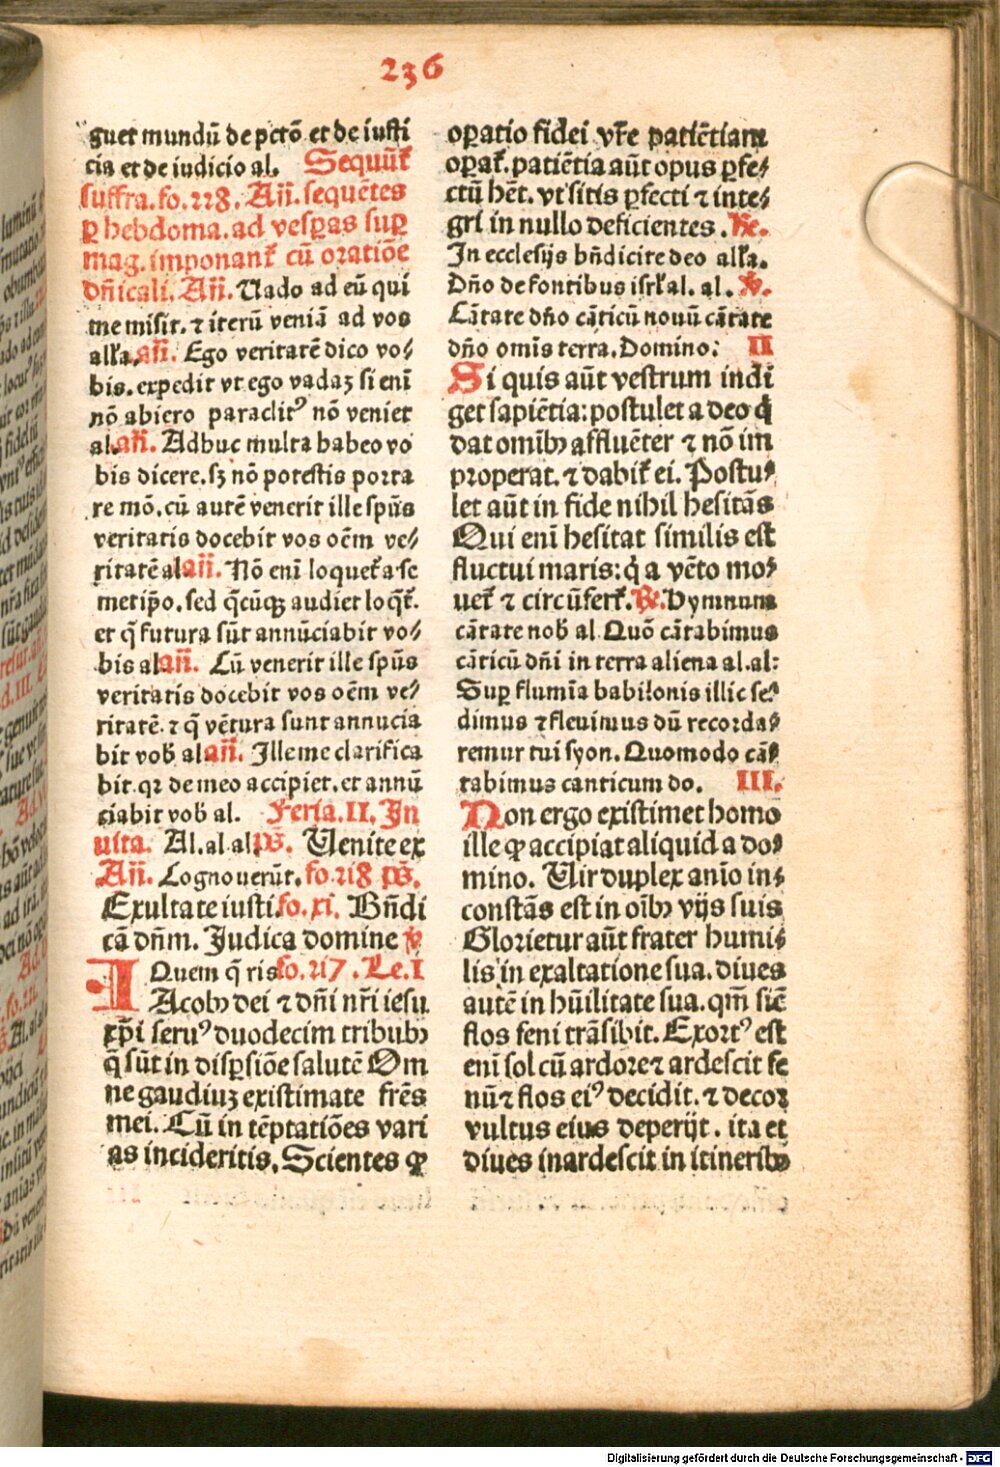 236
guet mundū de pctō et de iusti
cia et de iudicio al. Sequūt᷑
suffra. fo. 228. Añ. sequētes
ꝑ hebdoma. ad vesꝑas suꝑ
mag. imponant᷑ cū oratiōe
dñicali. Añ. Uado ad eū qui
me misit. ⁊ iterū veniā ad vos
alľa. añ. Ego veritatē dico vo⸗
bis. expedit vt ego vadaꝫ si eni
nō abiero paraclitꝰ nō veniet
al. añ. Adhuc multa habeo vo
bis dicere. sꝫ nō potestis porta
re mō. cū autē venerit ille spūs
veritatis docebit vos oēm ve⸗
ritatē al añ. Nō eni loquet᷑ a se
metip̄o. sed q̄cūqꝫ audiet loq̄t᷑.
et q̄ futura sūt annūciabit vo⸗
bis al añ. Cū venerit ille spūs
veritatis docebit vos oēm ve⸗
ritatē. ⁊ q̄ vētura sunt annucia
bit vob̄ al añ. Ille me clarifica
bit. qꝛ de meo accipiet. et annū
ciabit vob̄ al. Feria. II. In
uita. Al. al al. ps̄. Uenite ex
Añ. Cognouerūt. fo. 218 ps̄.
Exultate iusti. fo. xi. Bñdi
cā dñm. Judica domine ℣
Quem q̄ris fo. 217. Le. I
IAcobꝰ dei ⁊ dñi nr̄i iesu
xp̄i seruꝰ duodecim tribubꝰ
q̄ sūt in disꝑsiōe salutē Om
ne gaudiuꝫ existimate frēs
mei. Cū in tēptatiōes vari
as incideritis. Scientes ꝙ
oꝑatio fidei vr̄e patiētiam
oꝑat᷑. patiētia aūt opus ꝑfe⸗
ctū hēt. vt sitis ꝑfecti ⁊ inte⸗
gri in nullo deficientes. ℟.
In ecclesijs bñdicite deo alľa.
Dño de fontibus isrľ al. al. ℣.
Cātate dño cāticū nouū cātate
dño omīs terra. Domino: II
Si quis aūt vestrum indi
get sapiētia: postulet a deo q̇
dat omībꝰ affluēter ⁊ nō im
properat. ⁊ dabit᷑ ei. Postu⸗
let aūt in fide nihil hesitās
Qui eni hesitat similis est
fluctui maris: q̇ a vēto mo⸗
uet᷑ ⁊ circūfert᷑. ℟. Hymnum
cātate nob̄ al Quō cātabimus
cāticū dñi in terra aliena al. al:
Suꝑ flumīa babilonis illic se⸗
dimus ⁊ fleuimus dū recorda⸗
remur tui syon. Quomodo cā⸗
tabimus canticum do. III.
Non ergo existimet homo
ille ꝙ accipiat aliquid a do⸗
mino. Uir duplex anīo in⸗
constās est in oībꝰ vijs suis
Glorietur aūt frater humi⸗
lis in exaltatione sua. diues
autē in hūilitate sua. qm̄ sic̄
flos feni trāsibit. Exortꝰ est
eni sol cū ardore ⁊ ardescit fe
nū ⁊ flos eiꝰ decidit. ⁊ decor
vultus eius deperijt. ita et
diues inardescit in itineribꝰ
Digitalisierung gefördert durch die Deutsche Forschungsgemeinschaft - DFG